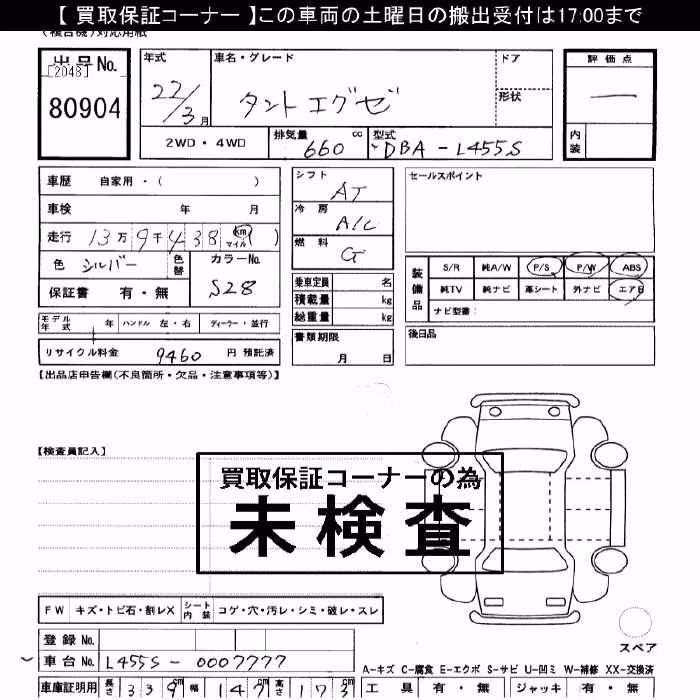 【 買取保証コーナー 】この車両の土曜日の搬出受付は17:00まで
出品No.
[2048]
80904
年式
22/3月
車名・グレード
タントエグゼ
ドア
形状
評価点
―
内装
2WD・4WD
排気量 660 cc
型式 DBA-L455S
車歴 自家用・( )
車検 年 月
走行 13万9千438 km マイル ( )
色 シルバー
色替
カラーNo.
S28
保証書 有・無
シフト AT
冷房 A/C
燃料 G
乗車定員 名
積載量 kg
総重量 kg
書類期限
月 日
セールスポイント
装備品
S/R 純A/W P/S P/W ABS
純TV 純ナビ 革シート 外ナビ エアB
ナビ型番:
後日品
モデル年式 年 ハンドル 左・右 ディーラー・並行
リサイクル料金 9460 円 預託済
【出品店申告欄(不良箇所・欠品・注意事項等)】
【検査員記入】
買取保証コーナーの為
未検査
FW キズ・トビ石・割レX シート内装 コゲ・穴・汚レ・シミ・破レ・スレ
登録 No.
車台 No. L455S-0007777
スペア
A-キズ C-腐食 E-エクボ S-サビ U-凹ミ W-補修 XX-交換済
車庫証明用 長さ 339cm 幅 147cm 高さ 173cm
工具 有・無 ジャッキ 有・無